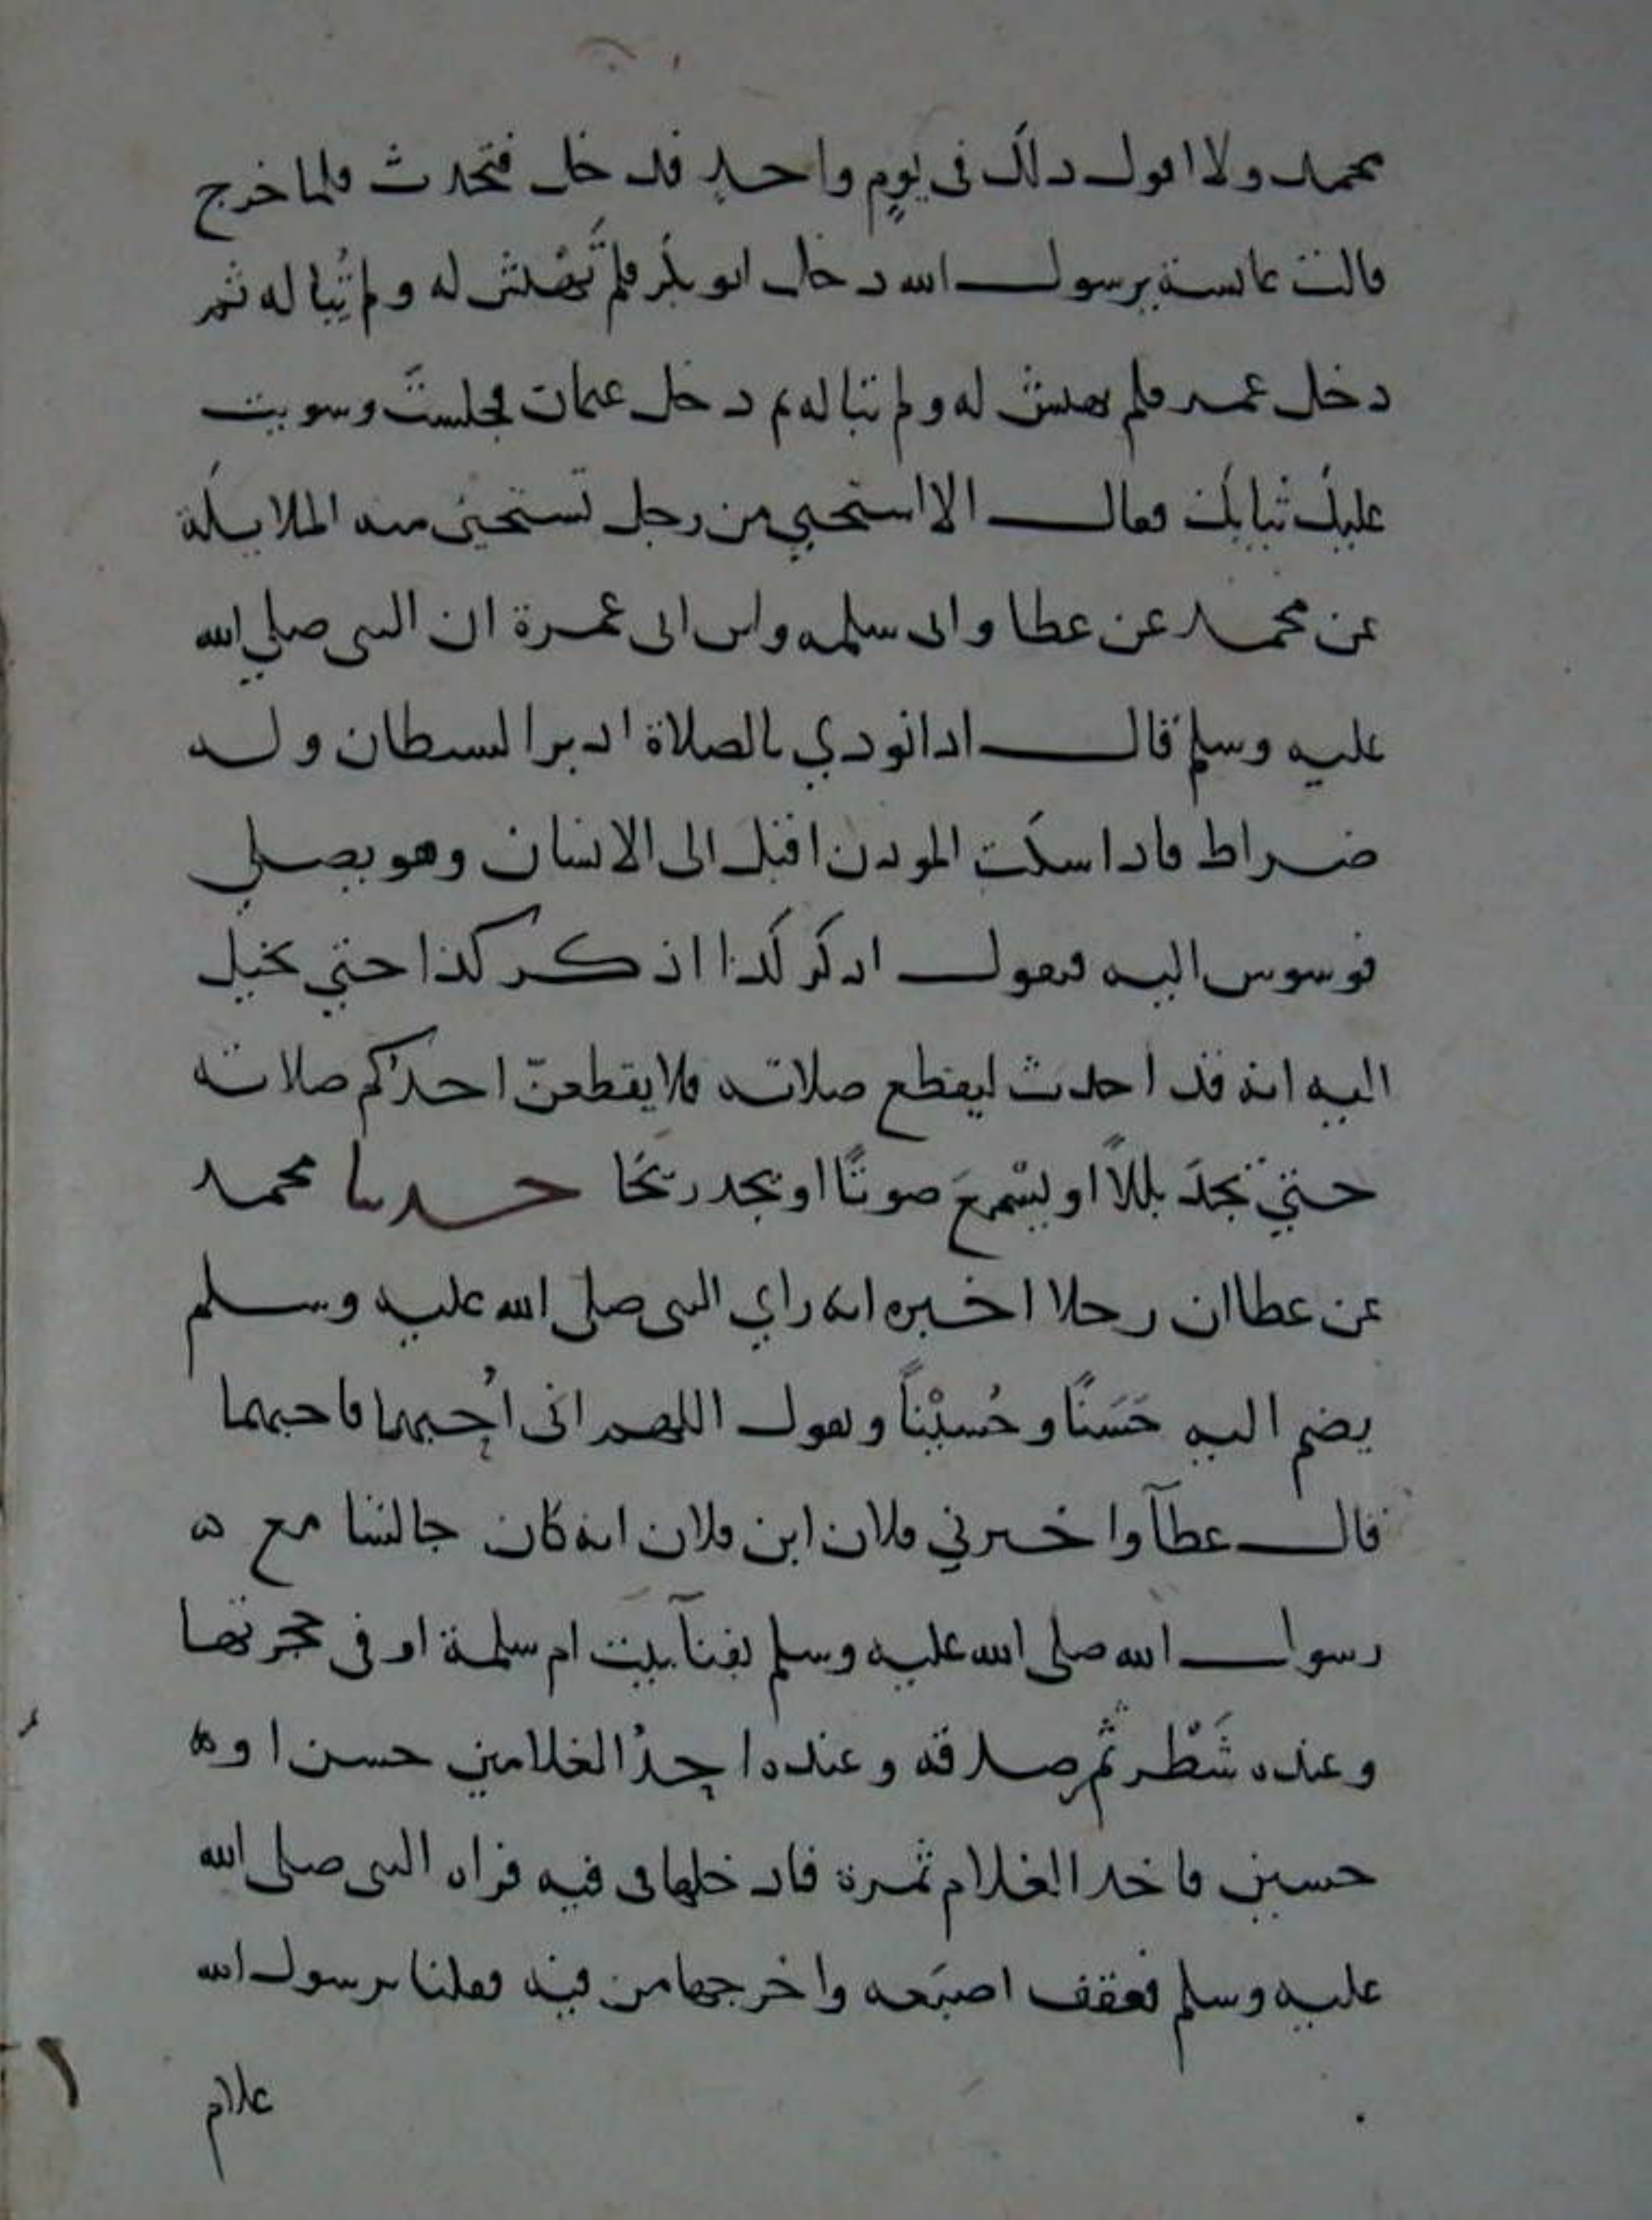 محمد ولا اقول ذلك في يومٍ واحدٍ فدخل فتحدث فلما خرج
قالت عايشة يرسول الله دخل ابو بكر فلم تَهْتش له ولم تُبا له ثم
دخل عمر فلم تهتش له ولم تبا له ثم دخل عثمان فجلستَ وسويت
عليك ثيابك فقال الا استحيي من رجل تستحيى منه الملايكة
عن محمد عن عطا وابي سلمه وابن ابى عمرة ان النبى صلي الله
عليه وسلم قال اذا نودي بالصلاة ادبر الشيطان وله
ضراط فاذا سكت الموذن اقبل الى الانسان وهو يصلي
فوسوس اليه فيقول اذكر كذا اذكر كذا حتي يخيل
اليه انه قد احدث ليقطع صلاته فلا يقطعنّ احدكم صلاته
حتي يجدَ بللاً او يسْمعَ صوتًا او يجد ريحًا حدثنا محمد
عن عطا ان رجلا اخبره انه راي النبى صلى الله عليه وسلم
يضم اليه حَسَنًا وحُسيْناً ويقول اللهم انى اُحِبهما فاحبهما
قال عطآ واخبرني فلان ابن فلان انه كان جالسًا مع ه
رسول الله صلى الله عليه وسلم بفنآ بيت ام سلمة او فى حجرتها
وعنده شَطْر ثَمر صدقه وعنده احِدُ الغلامين حسن او ه
حسين فاخذ الغلام ثمرة فادخلها فى فيه فراه النبى صلى الله
عليه وسلم فعقف اصبَعه واخرجها من فيه فقلنا يرسول الله
علام